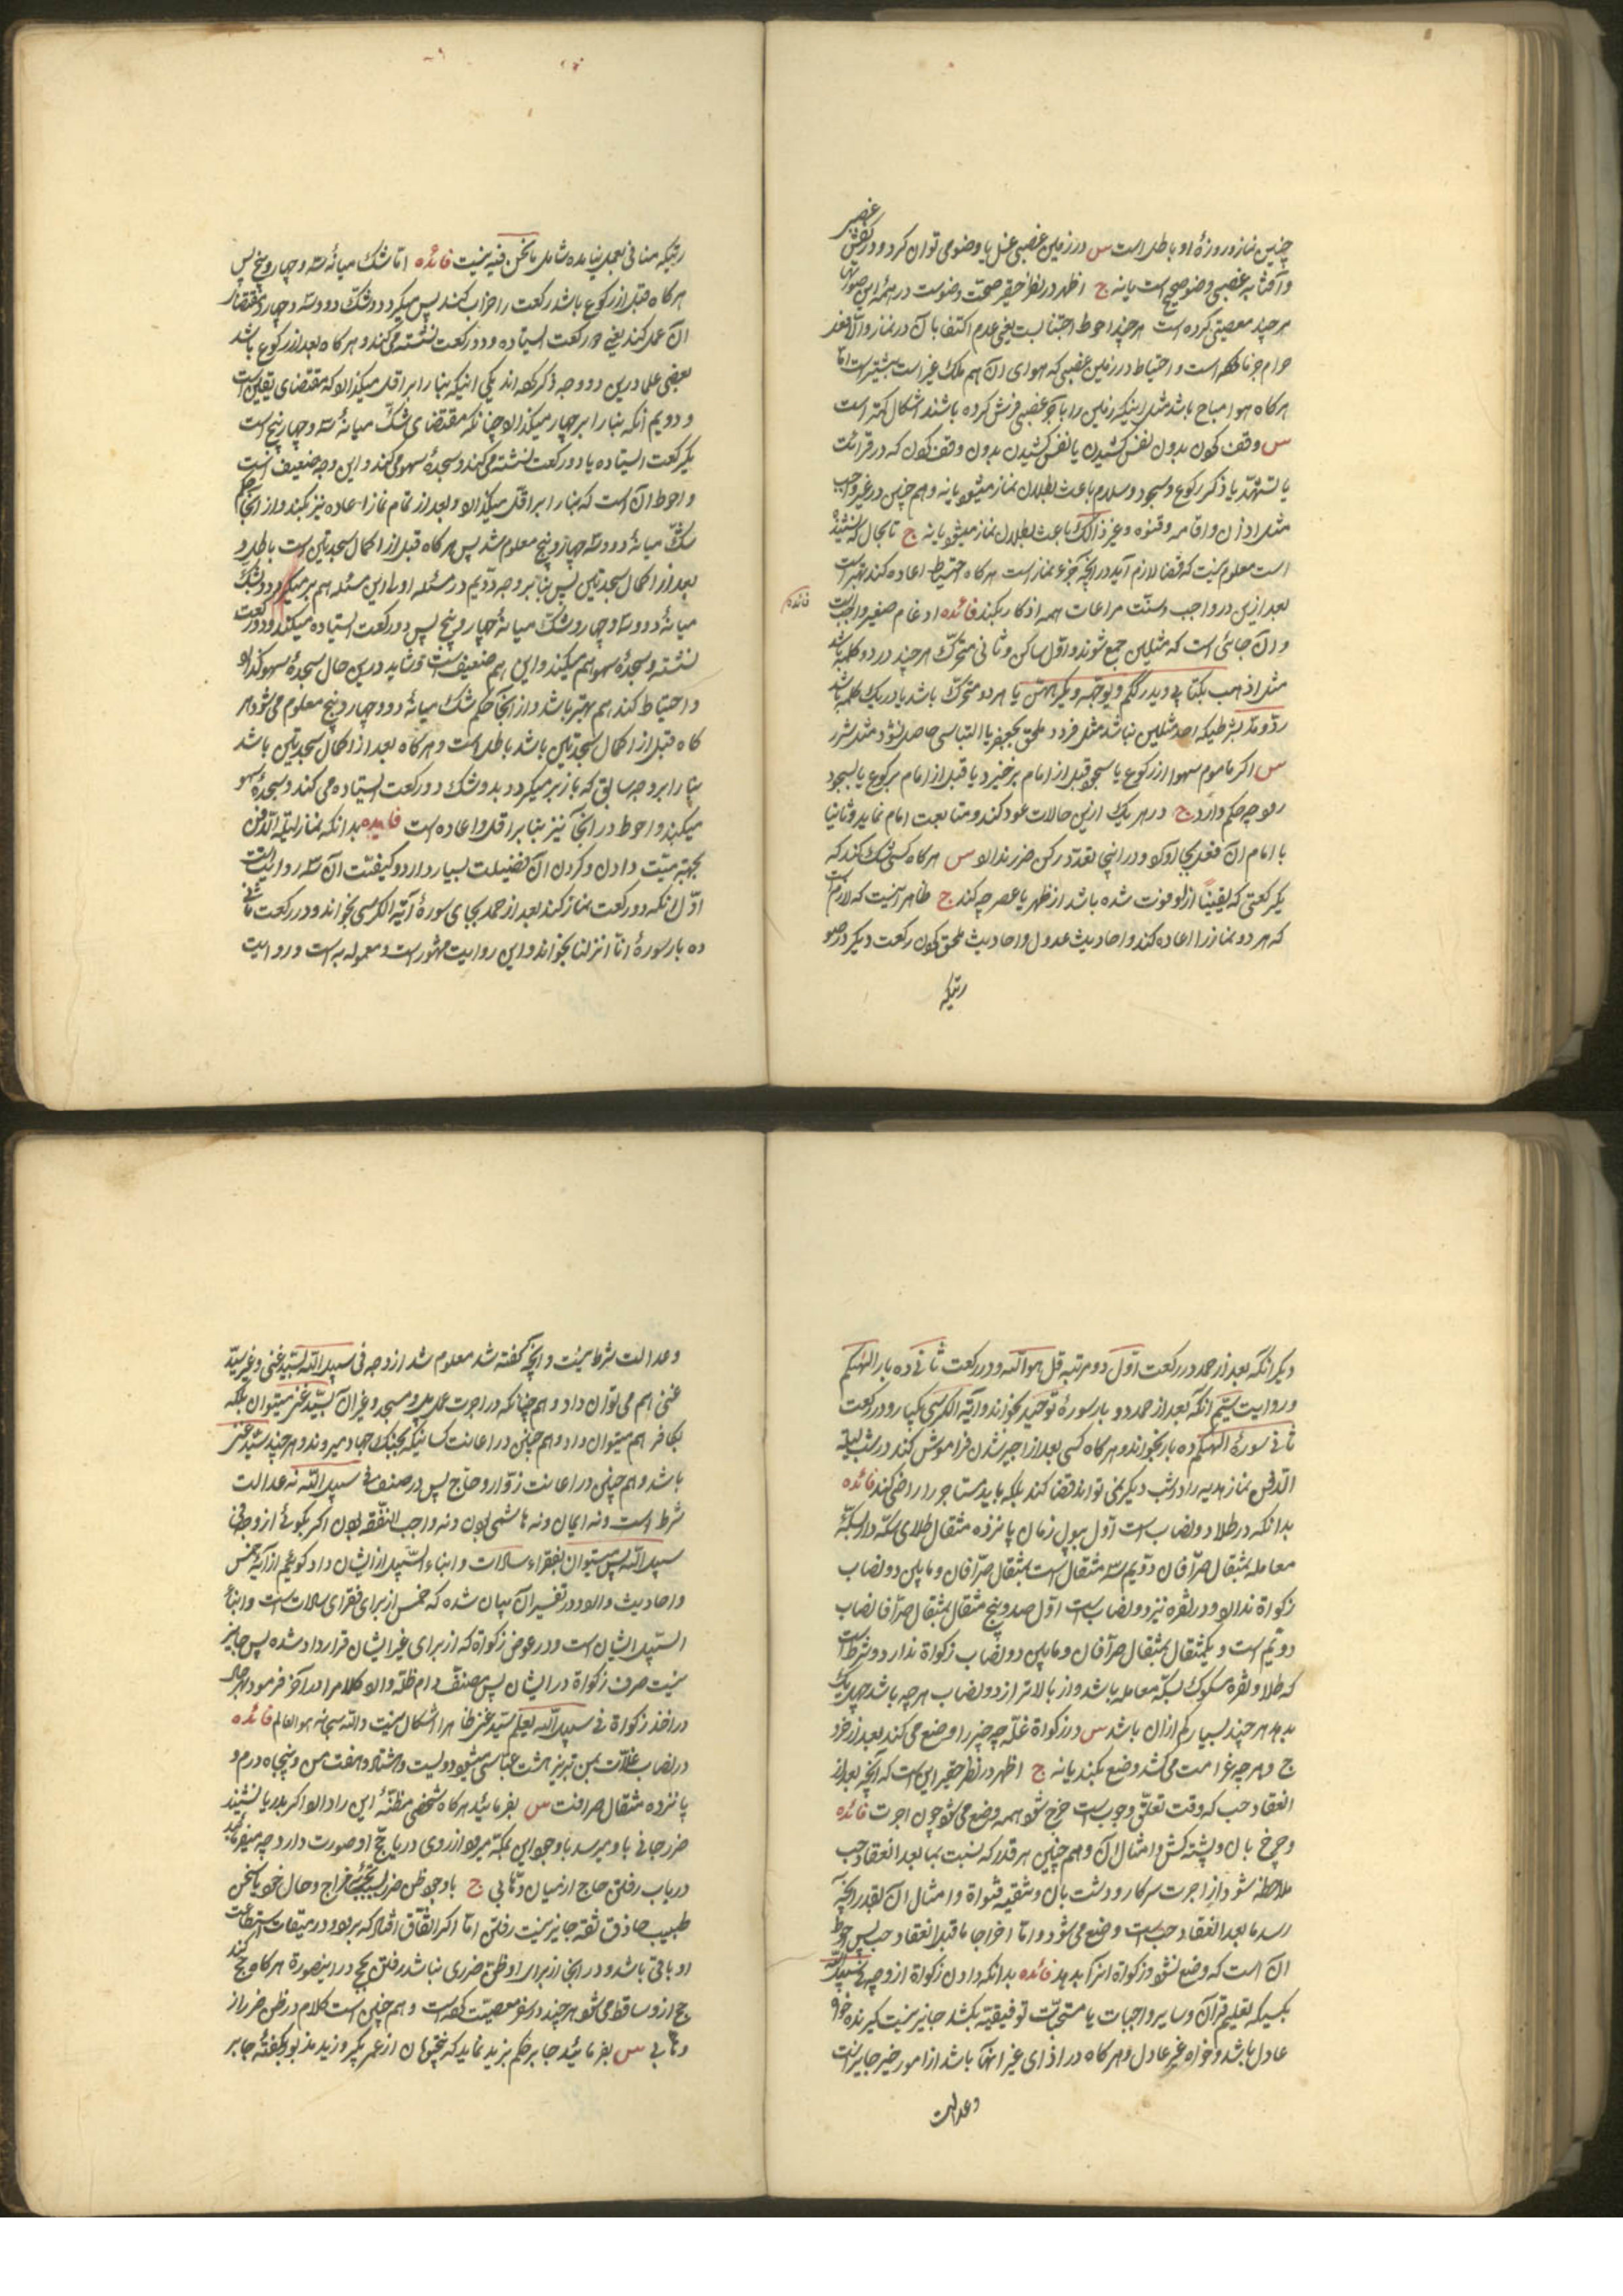 چنین نماز و روزهٔ او باطل است س در زمین غصبی غسل یا وضو می توان کرد و در کفش غصبی
و آفتابه غصبی وضو صحیح است یا نه ج اظهر در نظر حقیر صحّت وضوست در همهٔ این صورتها
هر چند معصیتی کرده است هر چند احوط اجتنابست یعنی عدم اکتفا بآن در نماز و الّا فعل
حرام جزماً کرده است و احتیاط در زمین غصبی که هوای آن هم ملک غیر است بیشتر است امّا
هرگاه هوا مباح باشد مثل اینکه زمین را بآجر غصبی فرش کرده باشند اشکال کمتر است
س وقف کردن بدون نفس کشیدن یا نفس کشیدن بدون وقف کردن که در قرائت
یا تشهّد یا ذکر رکوع و سجود و سلام باعث بطلان نماز میشود یا نه و هم چنین در غیر واجب
مثل اذان و اقامه و قنوت و غیر ذالک باعث بطلان نماز میشود یا نه ج تا بحال که نشنیده
است معلوم نیست که قضا لازم آید در آنچه جزء نماز است هرگاه احتیاط اعاده کند بهتر است
بعد ازین در واجب و سنّت مراعات همه اذکار بکند فائده ادغام صغیر واجب است
فائده
و آن جائی است که مثلین جمع شوند و اوّل ساکن و ثانی متحرّک هر چند در دو کلمه باشد
مثل اذهب بکتابی و یدرککم و یوجّهه و یکرههنّ یا هر دو متحرّک باشد یا در یک کلمه باشد
ردّ و مدّ بشرطیکه احد مثلین نباشد مثل قردد ملحق بجعفر یا التباسی حاصل نشود مثل شرر
س اکر ماموم سهوا از رکوع یا سجود قبل از امام برخیزد یا قبل از امام برکوع یا بسجود
رود چه حکم دارد ج در هر یک ازین حالات عود کند و متابعت امام نماید و ثانیا
با امام آن فعل بجا آورد و در اینجا تعدّد رکن ضرر ندارد س هرگاه کسی شک کند که
یک رکعتی که یقیناً ازو فوت شده باشد از ظهر یا عصر چه کند ج ظاهر اینست که لازم است
که هر دو نماز را اعاده کند و احادیث عدول و احادیث ملحق کردن رکعت دیکر در صو
رتیکه
رتیکه منافی بعمل نیامده شامل ما نحن فیه نیست فائده امّا شک میانهٔ سه و چهار و پنج پس
هرگاه قبل از رکوع باشد رکعت را خراب کند پس میکردد و شکّ دو و سه و چهار بمقتضای
آن عمل کند یعنی دو رکعت ایستاده و دو رکعت نشسته می کند و هر گاه بعد از رکوع باشد
بعضی علما درین دو وجه ذکر کرده اند یکی اینکه بنا را بر اقل میکذارد که مقتضای یقین است
و دویم آنکه بنا را بر چهار میکذارد چنانکه مقتضای شکّ میانهٔ سه و چهار پنج است
یک رکعت ایستاده یا دو رکعت نشسته می کند و سجدهٔ سهو می کند و این وجه ضعیف است
و احوط آن است که بنا را بر اقلّ میکذارد و بعد از تمام نماز اعاده نیز بکند و از اینجا حکم
شکّ میانهٔ دو و سه چهار و پنج معلوم شد پس هرگاه قبل از اکمال سجدتین است باطل و
بعد از اکمال سجدتین پس بنا بر وجه دویم در مسئله اولی این مسئله هم بر میکردد بشک
میانهٔ دو و سه و چهار و شکّ میانهٔ چهار و پنج پس دو رکعت ایستاده میکند و دو رکعت
نشسته و سجدهٔ سهو هم میکند و این هم ضعیف است و شاید درین حال سجدهٔ سهو کند
و احتیاط کند هم بهتر باشد و از اینجا حکم شک میانهٔ دو و چهار و پنج معلوم می شود هر
کاه قبل از اکمال سجدتین باشد باطل است و هر کاه بعد از اکمال سجدتین باشد
بنا را بر وجه سابق که باز بر میکردد بدو شک دو رکعت ایستاده می کند و سجدهٔ سهو
میکند و احوط در اینجا نیز بنا بر اقل و اعاده است فایده بدانکه نماز لیلة الدفن
بجهة میّت دادن و کردن آن فضیلت بسیار دارد و کیفیّت آن سه روایت است
اوّل آنکه دو رکعت نماز کند بعد از حمد بجای سورهٔ آیة الکرسی بخواند و در رکعت ثانی
ده بار سورهٔ انّا انزلنا بخواند و این روایت مشهور است و معمول به است و روایت
دیکر آنکه بعد از حمد در رکعت اوّل دو مرتبه قل هو اللّه و در رکعت ثانی ده بار الهیکم
و روایت سیّم آنکه بعد از حمد دو بار سورهٔ توحید بخواند و آیة الکرسی یکبار و در رکعت
ثانی سورهٔ الهیکم ده بار بخواند و هرگاه کسی بعد از اجیر شدن فراموش کند در شب لیلة
الدفن نماز هدیه را در شب دیکر نمی تواند قضا کند بلکه باید مستاجر را راضی کند فائده
بدانکه در طلا دو نصاب است اول بپول زمان پانزده مثقال طلای سکّه دار بسکّهٔ
معامله بمثقال صرّافان دویم سه مثقال است بمثقال صرّافان و ما بین دو نصاب
زکواة ندارد و در نقره نیز دو نصاب است اوّل صد و پنج مثقال بمثقال صرّافان نصاب
دویّم است و یکمثقال بمثقال صرّافان و ما بین دو نصاب زکواة ندارد و شرط است
که طلا و نقره مسکوک بسکّه معامله باشد و از بالاتر از دو نصاب هر چه باشد چهل یک
بدهد هر چند بسیار کم از آن باشد س در زکواة غلّه چه چیز را وضع می کند بعد از خر
ج و هر چه غرامت می کشد وضع بکند یا نه ج اظهر در نظر حقیر این است که آنچه بعد از
انعقاد حب که وقت تعلّق وجوب است خرج شود همه وضع می شود چون اجرت فائده
و چرخ بان و پشته کش و امثال آن و هم چنین هر قدر که نسبت بما بعد انعقاد حب
ملاحظه شود از اجرت سرکار و دشت بان و تنقیه قنواة و امثال آن بقدر آنچه
رسد ما بعد انعقاد حب است وضع می شود و امّا اخراجا ما قبل انعقاد حب پس احوط
آن است که وضع نشود و زکواة آنرا بدهد فائده بدانکه دادن زکواة از وجه فی سبیل اللّه
بکسیکه تعلیم قرآن و سایر واجبات یا مستحبّات توفیقیّه بکند جایز نیست کیرنده خواه
عادل باشد و خواه غیر عادل و هر کاه در ازای غیر انها باشد از امور خیر جایز است
و عدالت
و عدالت شرط نیست و آنچه کفته شد معلوم شد از وجه فی سبیل اللّه بسیّد غنی و غیر سیّد
غنی هم می توان داد و هم چنانکه در اجرت عمل پل و مسجد و غیر آن بسیّد غنی میتوان بلکه
بکافر هم میتوان داد و هم چنین در اعانت کسانیکه بجنک جهاد میروند و هر چند سیّد غنی
باشد و هم چنین در اعانت زوّار و حاج پس در صنف فی سبیل اللّه نه عدالت
شرط است و نه ایمان و نه هاشمی بودن و نه واجب النفقه بودن اکر بکوئی از وجه فی
سبیل اللّه پس میتوان بفقراء سادات و ابناء السّبیل از ایشان داد کوئیم از آیه خمس
و احادیث وارد در تفسیر آن بیان شده که خمس از برای فقرای سادات است و ابناء
السّبیل ایشان است و در عوض زکواة که از برای غیر ایشان قرارداد شده پس جایز
نیست صرف زکواة در ایشان پس مصنّف دام ظلّه والا کلام را در آخر فرمود هر حال
در اخذ زکواة فی سبیل اللّه بتعلیم سیّد غنی ظاهرا اشکال نیست و اللّه سبحانه هو العالم فائده
در نصاب غلاّت بمن تبریز هشت عبّاسی میشود دویست و هشتاد و هفت من و پنجاه درم و
پانزده مثقال صرافست س بفرمائید هرگاه شخصی مظنّهٔ این را دارد اکر بدریا نشیند
ضرر جانی باو میرسد با وجود این بمکه میرود از روی دریا حجّ او صورت دارد چه میفرمائید
در باب رفتن حاج از میان وهّابی ج با وجود ظنّ ضرر بسبب تجربهٔ مزاج و حال خود یا سخن
طبیب حاذق ثقه جایز نیست رفتن امّا اکر اتّفاق افتاد که برود و در میقات استطاعت
او باقی باشد و در اینجا از برای او ظنّ ضرری نباشد رفتن حج در اینصورة هرگاه حج کند
حج ازو ساقط می شود هر چند در سفر معصیّت کرده است و هم چنین است کلام در ظنّ ضرر از
وهّابی س بفرمائید جابر حکم بزید نماید که پنجتومان از عمر بکیر و زید مذبور بکفتهٔ جابر